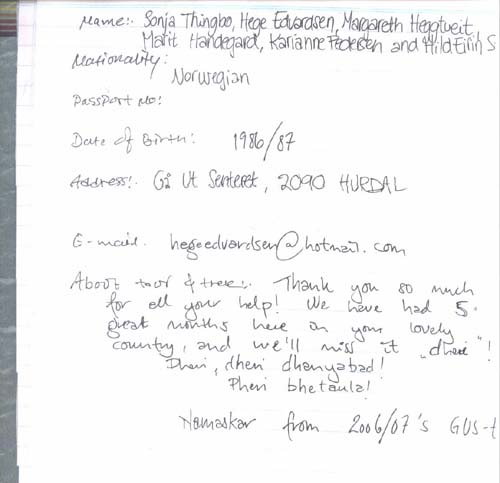 Name:. Sonja Thingbo, Hege Edvardsen, Margareth Heggtveit
Marit Handegard, Karianne Pedersen and Hild Eirin S
Nationality:
Norwegian
Passport No:
Date of Birth: 1986/87
Address:. Gå Ut Senteret, 2090 HURDAL
E-mail. hegeedvardsen@hotmail.com
About tour & trek:. Thank you so much
for all your help! We have had 5
great months here in your lovely
country, and we'll miss it „dheri"!
Dheri, dheri dhanyabad!
Pheri bhetaula!
Namaskar from 2006/07's GUS-t